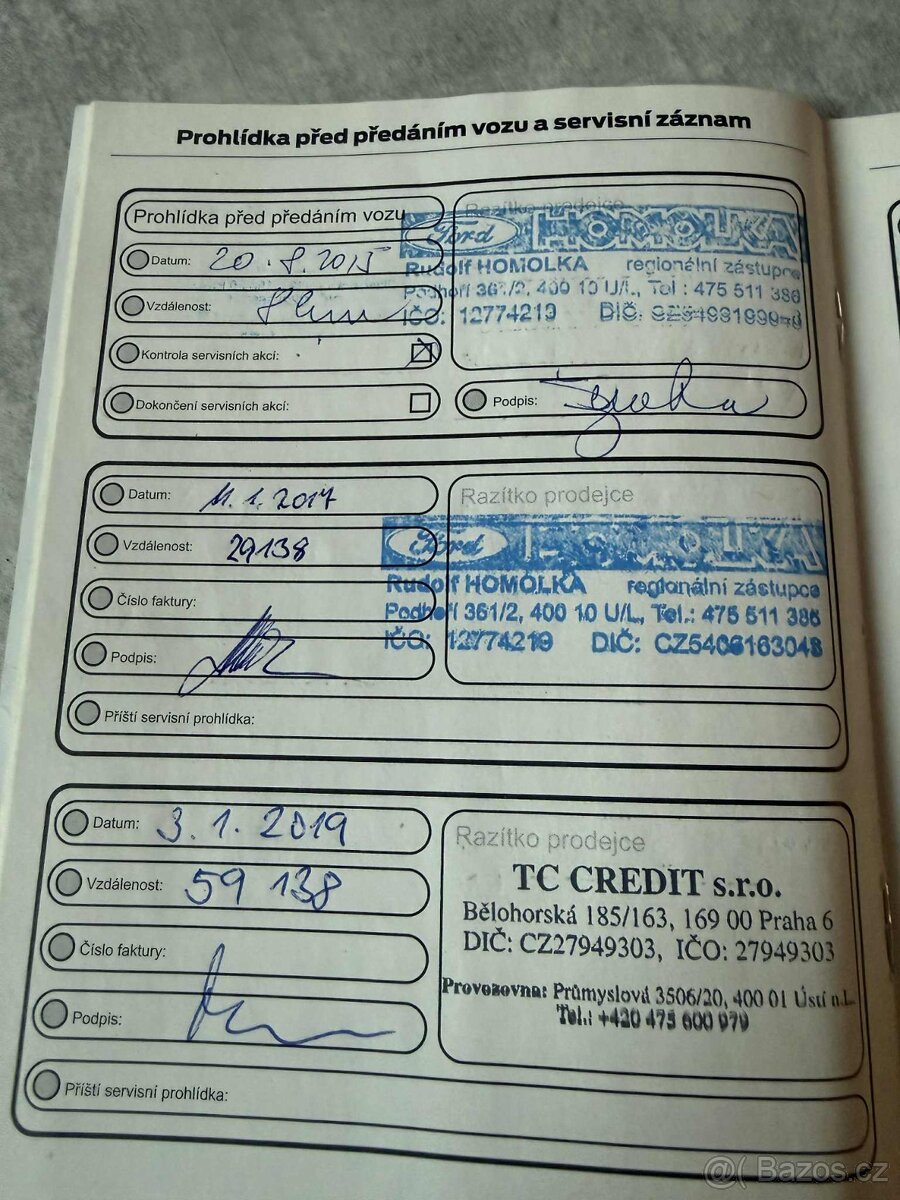 Prohlídka před předáním vozu a servisní záznam
Prohlídka před předáním vozu
Datum: 20.8.2015
Vzdálenost:
Kontrola servisních akcí:
Dokončení servisních akcí:
Razítko prodejce
Ford HOMOLKA
Rudolf HOMOLKA regionální zástupce
Podhoří 361/2, 400 10 U/L, Tel.: 475 511 386
IČO: 12774219 DIČ:
Podpis:
Datum: 11.1.2017
Vzdálenost: 29138
Číslo faktury:
Podpis:
Razítko prodejce
Ford HOMOLKA
Rudolf HOMOLKA regionální zástupce
Podhoří 361/2, 400 10 U/L, Tel.: 475 511 386
IČO: 12774219 DIČ: CZ5406163048
Příští servisní prohlídka:
Datum: 3.1.2019
Vzdálenost: 59 138
Číslo faktury:
Podpis:
Razítko prodejce
TC CREDIT s.r.o.
Bělohorská 185/163, 169 00 Praha 6
DIČ: CZ27949303, IČO: 27949303
Provozovna: Průmyslová 3506/20, 400 01 Ústí n.L.
Tel.: +420 475 600 979
Příští servisní prohlídka:
@( Bazos.cz